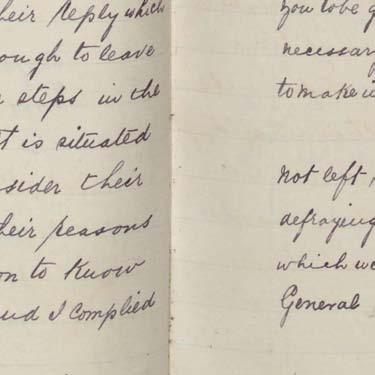 their Reply which
ough to leave
steps in the
t is situated
sider their
heir reasons
on to Know
and I complied
you to be g
necessar
to make i
not left
defraying
which we
General